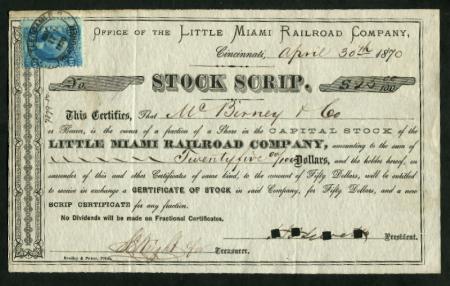 Office of the Little Miami Railroad Company,
Cincinnati, April 30th 1870
No. STOCK SCRIP. $25 00/100
This Certifies, That McBirney & Co
or Bearer, is the owner of a fraction of a Share in the CAPITAL STOCK of the
LITTLE MIAMI RAILROAD COMPANY, amounting to the sum of
Twenty five 00/100 Dollars, and the holder hereof, on
surrender of this and other Certificates of same kind, to the amount of Fifty Dollars, will be entitled
to receive in exchange a CERTIFICATE OF STOCK in said Company, for Fifty Dollars, and a new
SCRIP CERTIFICATE for any fraction.
No Dividends will be made on Fractional Certificates.
President.
Treasurer.
Bradley & Power, Print.